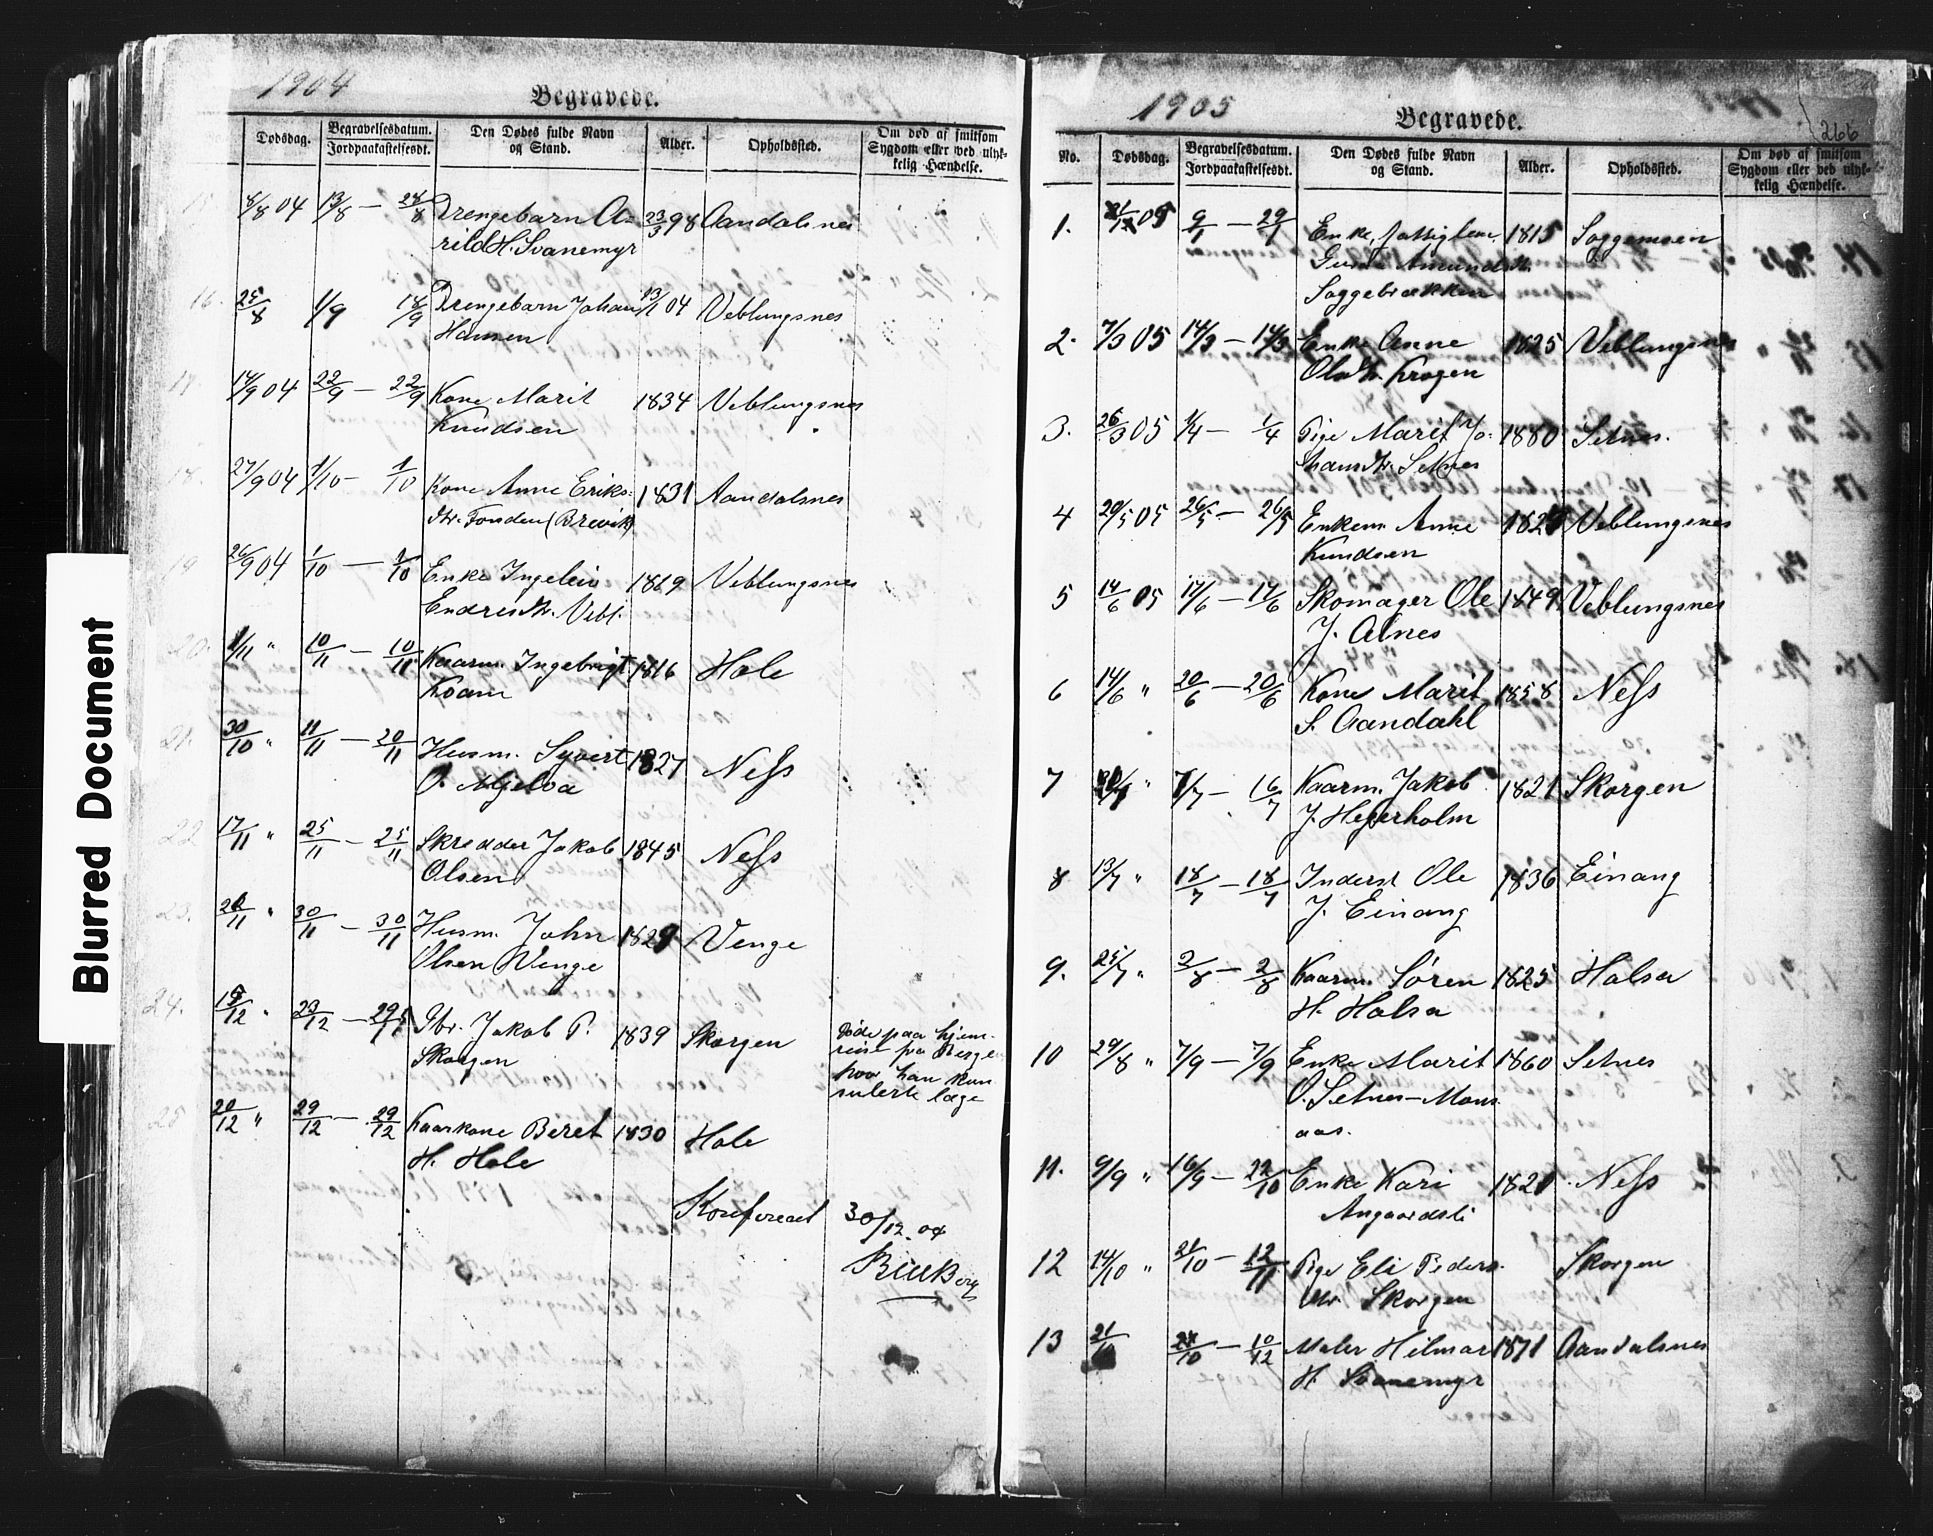 Blurred Document
1904
Begravede.
Dødsdag. Begravelsesdatum. Jordpaakastelsesdt. Den Dødes fulde Navn og Stand. Alder. Opholdssted. Om død af smitsom Sygdom eller ved ulyk-kelig Hændelse.
15 8/8 04 13/8 — 28/8 Drengebarn A- 23/3 98 Aandalsnes
rild H. Svanemyr
16. 25/8 1/9 18/9 Drengebarn Johan 13/1 04 Veblungsnes
Hansen
17 14/9 04 22/9 — 22/9 Kone Marit 1834 Veblungsnes
Knudsen
18. 27/9 04 1/10 - 1/10 Kone Anne Eriks- 1831 Aandalsnes
dtr. Fonden (Brevik)
19 26/9 04 1/10 — 1/10 Enke Ingeleiv 1869 Veblungsnes
Endresdtr. Vebl.
20. 1/11 " 10/11 — 10/11 Kaarm. Ingebrigt 1816 Hole
Koam
21. 30/10 " 11/11 — 20/11 Husm. Syvert 1827 Ness
O. Mjelva
22 17/11 " 25/11 — 25/11 Skredder Jakob 1845 Ness
Olsen
23. 11 " 30/11 — 30/11 Husm. John 1829 Venge
Olsen Venge
24. 12 " 23/12 — Gbr. Jakob P. 1839 Skorgen Døde paa hjem-
Skorgen reise fra Bergen
hvor han kon-
sulerte læge
25 20/12 " 29/12 — 29/12 Kaarkone Beret 1830 Hole
H. Hole
Konfereret 30/12 04
1905
Begravede.
266
No. Dødsdag. Begravelsesdatum. Jordpaakastelsesdt. Den Dødes fulde Navn og Stand. Alder. Opholdssted. Om død af smitsom Sygdom eller ved ulyk-kelig Hændelse.
1. 05 9/1 — 29/1 Enke, fattiglem 1815 Soggemoen
Amundsdt.
Soggebrækken
2. 7/3 05 14/3 — 14/3 Enke Anne 1825 Veblungsnes
Olsdtr. Krogen
3. 26/3 05 1/4 — 1/4 Pige Marit Jo- 1880 Setnes.
hansdtr. Setnes
4 20/5 05 26/5 — 26/5 Enkem. Arne Veblungsnes
Knudsen
5 14/6 05 17/6 — 17/6 Skomager Ole 1849 Veblungsnes
J. Alnes
6 14/6 " 20/6 — 20/6 Kone Marit 1858 Ness
S. Aandahl
7 " 7/7 — 16/7 Kaarm. Jakob 1821 Skorgen
J. Hegerholm
8 13/7 " 18/7 — 18/7 Inderst Ole 1836 Einang
J. Einang
9. 25/7 " 2/8 — 2/8 Kaarm. Søren 1825 Halsa
H. Halsa
10 29/8 " 7/9 — 7/9 Enke Marit 1860 Setnes
O. Setnes-Mons-
aas.
11. 9/9 " 16/9 — 22/10 Enke Kari 1821 Ness
Angaardsli
12 14/10 " 21/10 — 12/11 Pige Eli Peders- Skorgen
dtr. Skorgen
13 21/10 28/10 — 10/12 Maler Hilmar 1871 Aandalsnes
H. Svanemyr